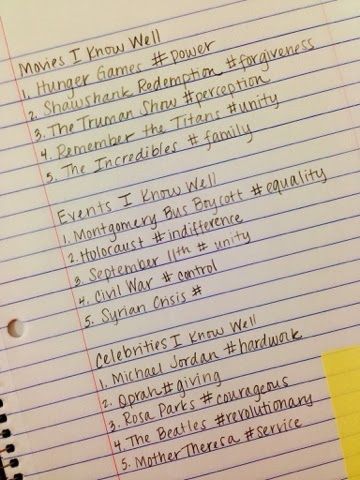 Movies I Know Well
1. Hunger Games #power
2. Shawshank Redemption #forgiveness
3. The Truman Show #perception
4. Remember the Titans #unity
5. The Incredibles # family
Events I Know Well
1. Montgomery Bus Boycott #equality
2. Holocaust #indifference
3. September 11th # unity
4. Civil War # control
5. Syrian Crisis #
Celebrities I Know Well
1. Michael Jordan #hardwork
2. Oprah #giving
3. Rosa Parks #courageous
4. The Beatles #revolutionary
5. Mother Theresa #service